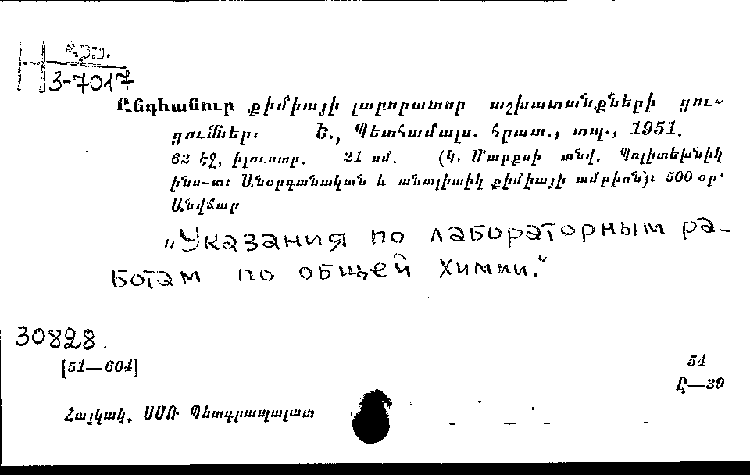 Арм.
3-7017
Ընդհանուր քիմիայի լաբորատոր աշխատանքների ցու-
ցումներ։ Ե., Պետհամալս. հրատ., տպ., 1951.
62 էջ, իլուստր. 21 սմ. (Կ. Մարքսի անվ. Պոլիտեխնիկ
ինս-տ։ Անօրգանական և անալիտիկ քիմիայի ամբիոն)։ 500 օր՝
Անվճար
„Указания по лабораторным ра-
ботам по общей химии.“
30828.
[51—604] 54
Ը—39
Հայկակ. ՍՍՌ Պետգրապալատ